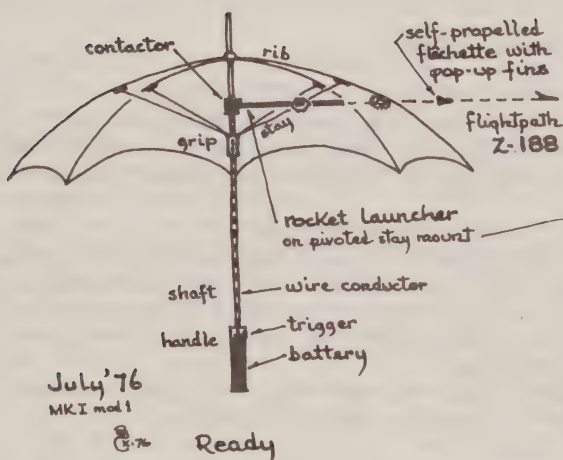 contactor
rib
self-propelled
flechette with
pop-up fins
flightpath
Z-188
stay
grip
rocket launcher
on pivoted stay mount
shaft
wire conductor
handle
trigger
battery
July '76
MK I mod 1
Ready